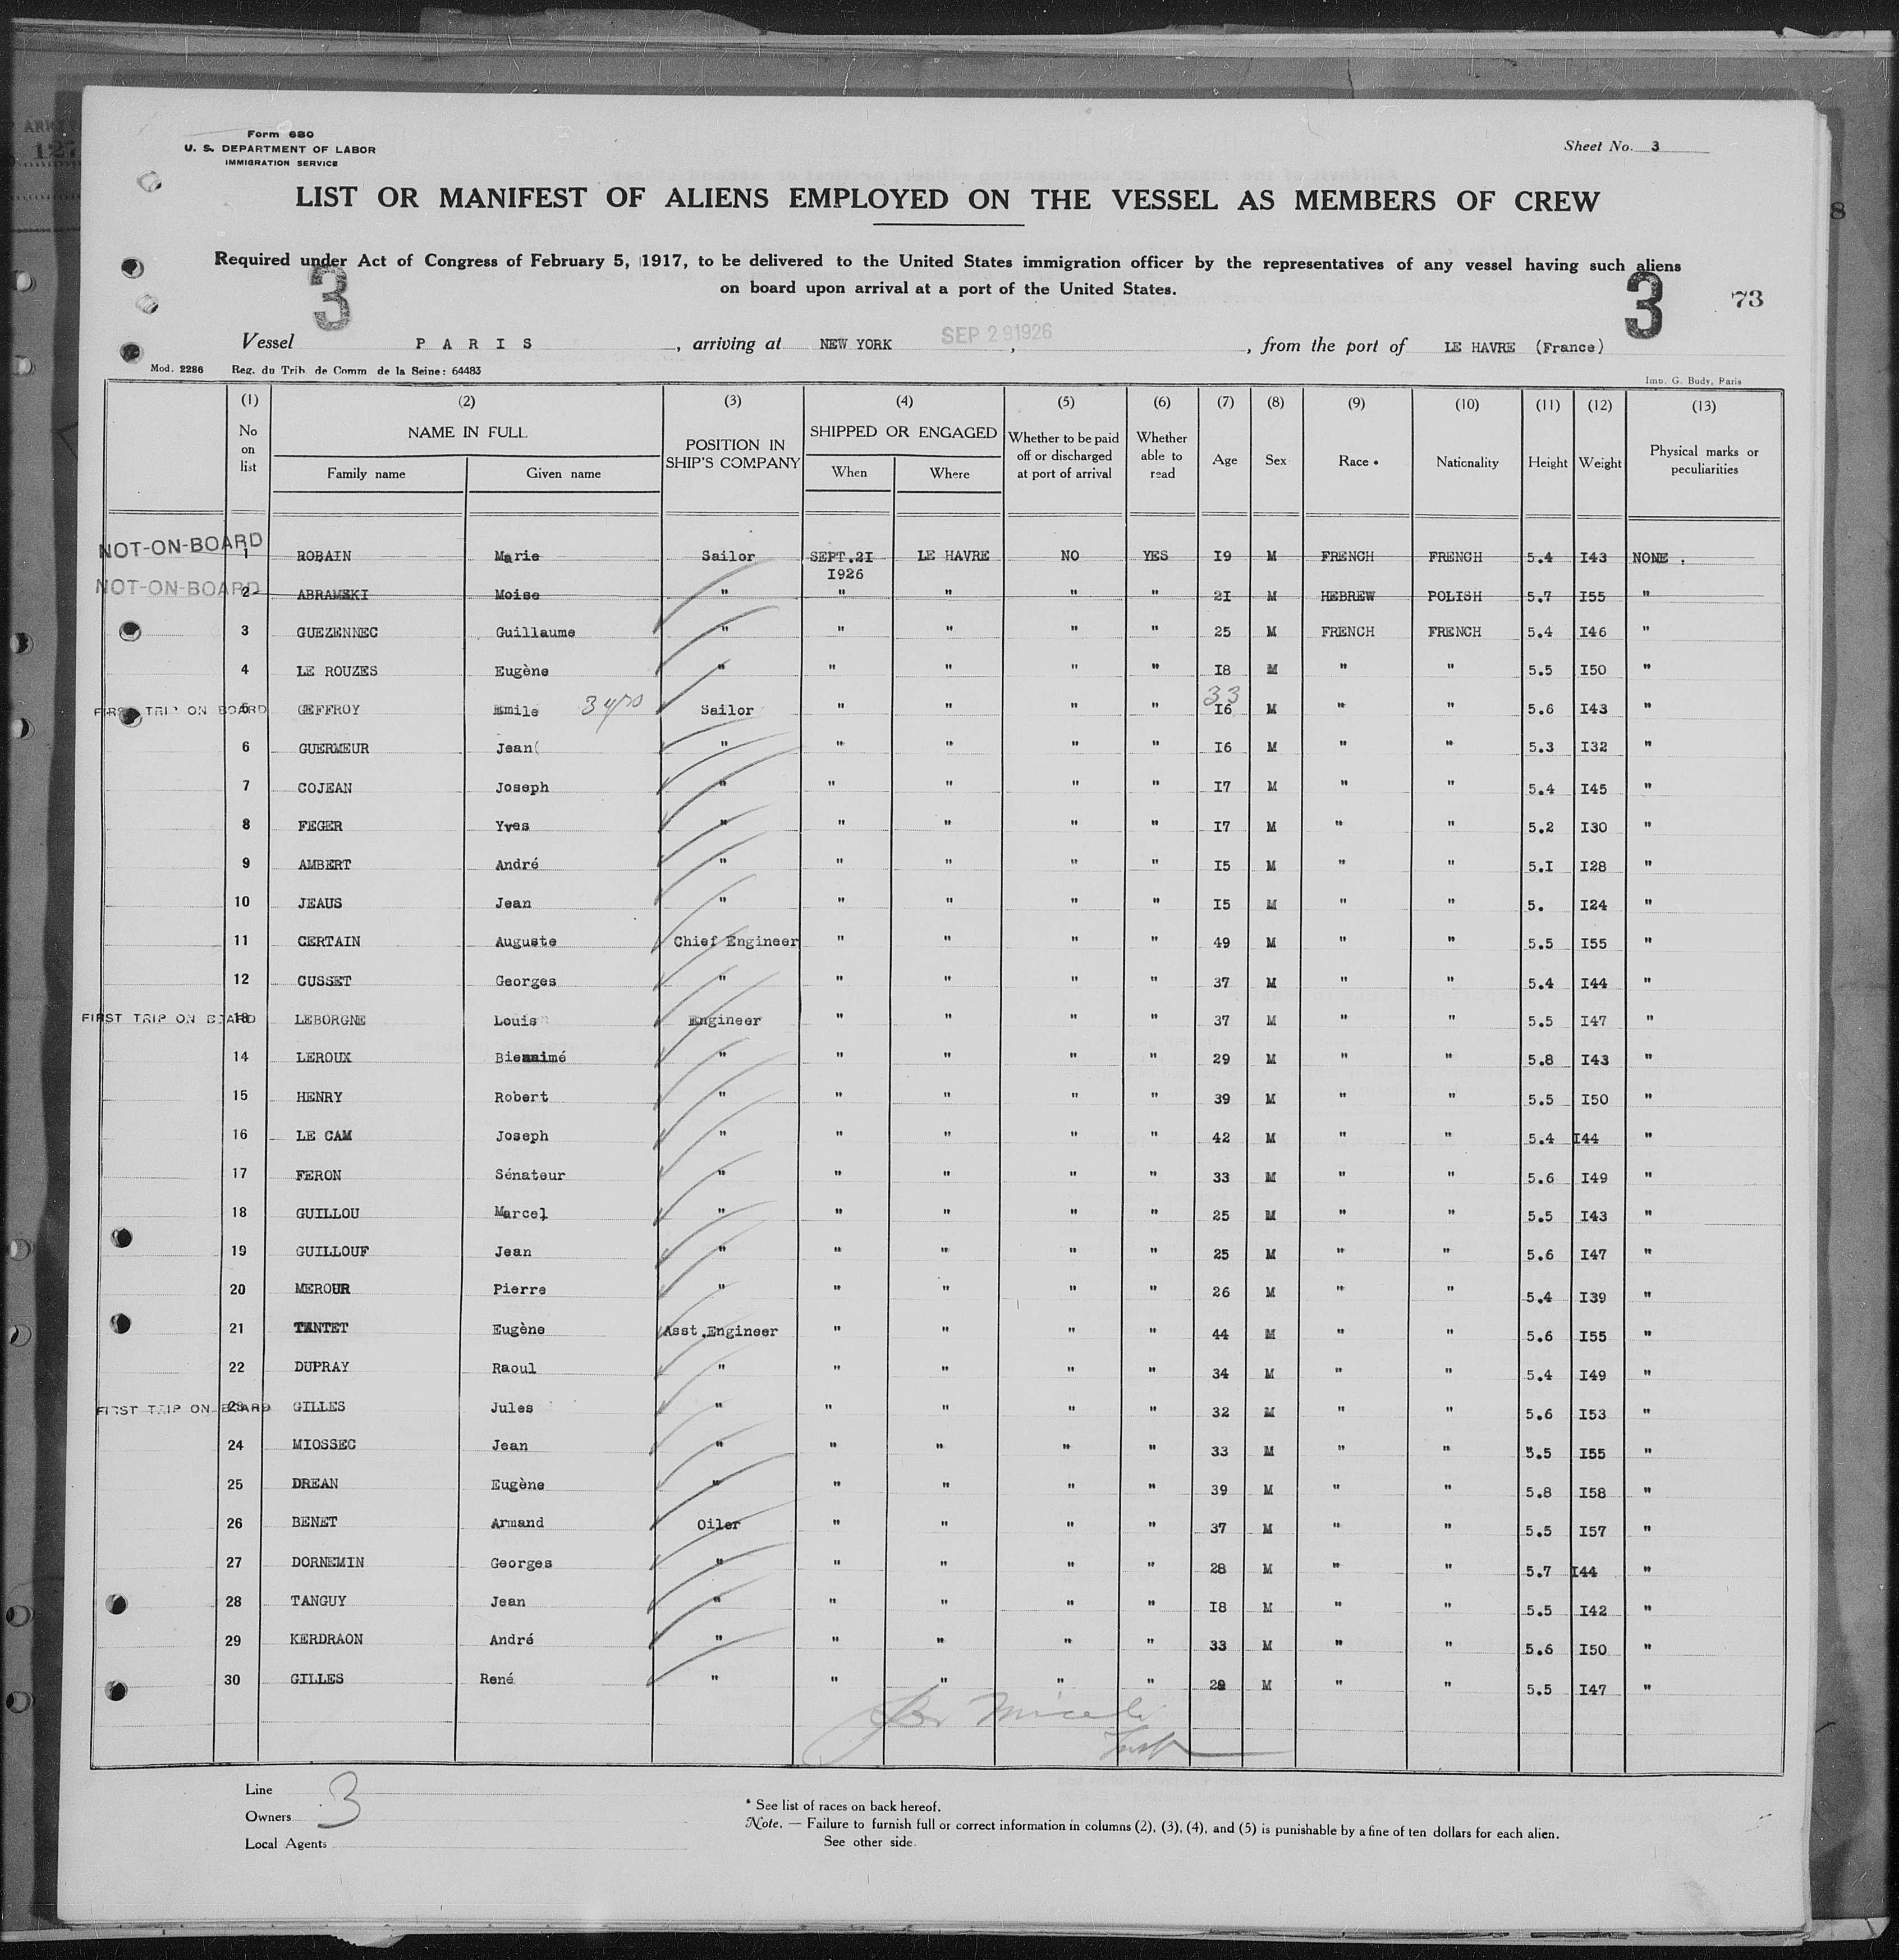 Form 680
U. S. DEPARTMENT OF LABOR
IMMIGRATION SERVICE
Sheet No. 3
LIST OR MANIFEST OF ALIENS EMPLOYED ON THE VESSEL AS MEMBERS OF CREW
Required under Act of Congress of February 5, 1917, to be delivered to the United States immigration officer by the representatives of any vessel having such aliens
on board upon arrival at a port of the United States.
3 3 73
Vessel PARIS, arriving at NEW YORK SEP 29 1926, from the port of LE HAVRE (France)
Mod. 2286 Reg. du Trib. de Comm de la Seine: 64483 Imp. G. Budy, Paris
(1) (2) (3) (4) (5) (6) (7) (8) (9) (10) (11) (12) (13)
No on list NAME IN FULL Family name Given name POSITION IN SHIP'S COMPANY SHIPPED OR ENGAGED When Where Whether to be paid off or discharged at port of arrival Whether able to read Age Sex Race * Nationality Height Weight Physical marks or peculiarities
NOT-ON-BOARD 1 ROBAIN Marie Sailor SEPT.2I I926 LE HAVRE NO YES I9 M FRENCH FRENCH 5.4 I43 NONE .
NOT-ON-BOARD 2 ABRAMSKI Moise " " " " " 2I M HEBREW POLISH 5.7 I55 "
3 GUEZENNEC Guillaume " " " " " 25 M FRENCH FRENCH 5.4 I46 "
4 LE ROUZES Eugène " " " " " I8 M " " 5.5 I50 "
FIRST TRIP ON BOARD 5 GEFFROY Emile Sailor " " " " 33 I6 M " " 5.6 I43 "
6 GUERMEUR Jean( " " " " " I6 M " " 5.3 I32 "
7 COJEAN Joseph " " " " " I7 M " " 5.4 I45 "
8 FEGER Yves " " " " " I7 M " " 5.2 I30 "
9 AMBERT André " " " " " I5 M " " 5.I I28 "
10 JEAUS Jean " " " " " I5 M " " 5. I24 "
11 CERTAIN Auguste Chief Engineer " " " " 49 M " " 5.5 I55 "
12 CUSSET Georges " " " " " 37 M " " 5.4 I44 "
FIRST TRIP ON BOARD 13 LEBORGNE Louis Engineer " " " " 37 M " " 5.5 I47 "
14 LEROUX Bienaimé " " " " " 29 M " " 5.8 I43 "
15 HENRY Robert " " " " " 39 M " " 5.5 I50 "
16 LE CAM Joseph " " " " " 42 M " " 5.4 I44 "
17 FERON Sénateur " " " " " 33 M " " 5.6 I49 "
18 GUILLOU Marcel " " " " " 25 M " " 5.5 I43 "
19 GUILLOUF Jean " " " " " 25 M " " 5.6 I47 "
20 MEROUR Pierre " " " " " 26 M " " 5.4 I39 "
21 TANTET Eugène Asst.Engineer " " " " 44 M " " 5.6 I55 "
22 DUPRAY Raoul " " " " " 34 M " " 5.4 I49 "
FIRST TRIP ON BOARD 23 GILLES Jules " " " " " 32 M " " 5.6 I53 "
24 MIOSSEC Jean " " " " " 33 M " " 5.5 I55 "
25 DREAN Eugène " " " " " 39 M " " 5.8 I58 "
26 BENET Armand Oiler " " " " 37 M " " 5.5 I57 "
27 DORNEMIN Georges " " " " " 28 M " " 5.7 I44 "
28 TANGUY Jean " " " " " I8 M " " 5.5 I42 "
29 KERDRAON André " " " " " 33 M " " 5.6 I50 "
30 GILLES René " " " " " 28 M " " 5.5 I47 "
Line
Owners 3
Local Agents
* See list of races on back hereof.
Note. — Failure to furnish full or correct information in columns (2), (3), (4), and (5) is punishable by a fine of ten dollars for each alien.
See other side.